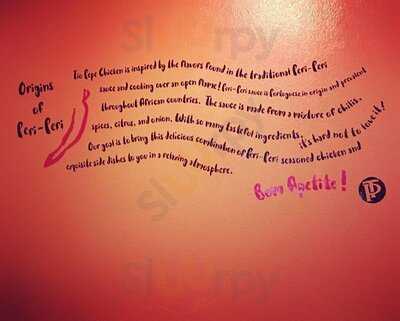 Origins
of
Peri-Peri
Tio Pepe Chicken is inspired by the flavors found in the traditional Peri-Peri
sauce and cooking over an open flame! Peri-Peri sauce is Portuguese in origin and prevalent
throughout African countries. The sauce is made from a mixture of chilis,
spices, citrus, and onion. With so many tasteful ingredients, it's hard not to love it!
Our goal is to bring this delicious combination of Peri-Peri seasoned chicken and
exquisite side dishes to you in a relaxing atmosphere.
Bom Apetite!
TP
Sluurpy
Sluurpy